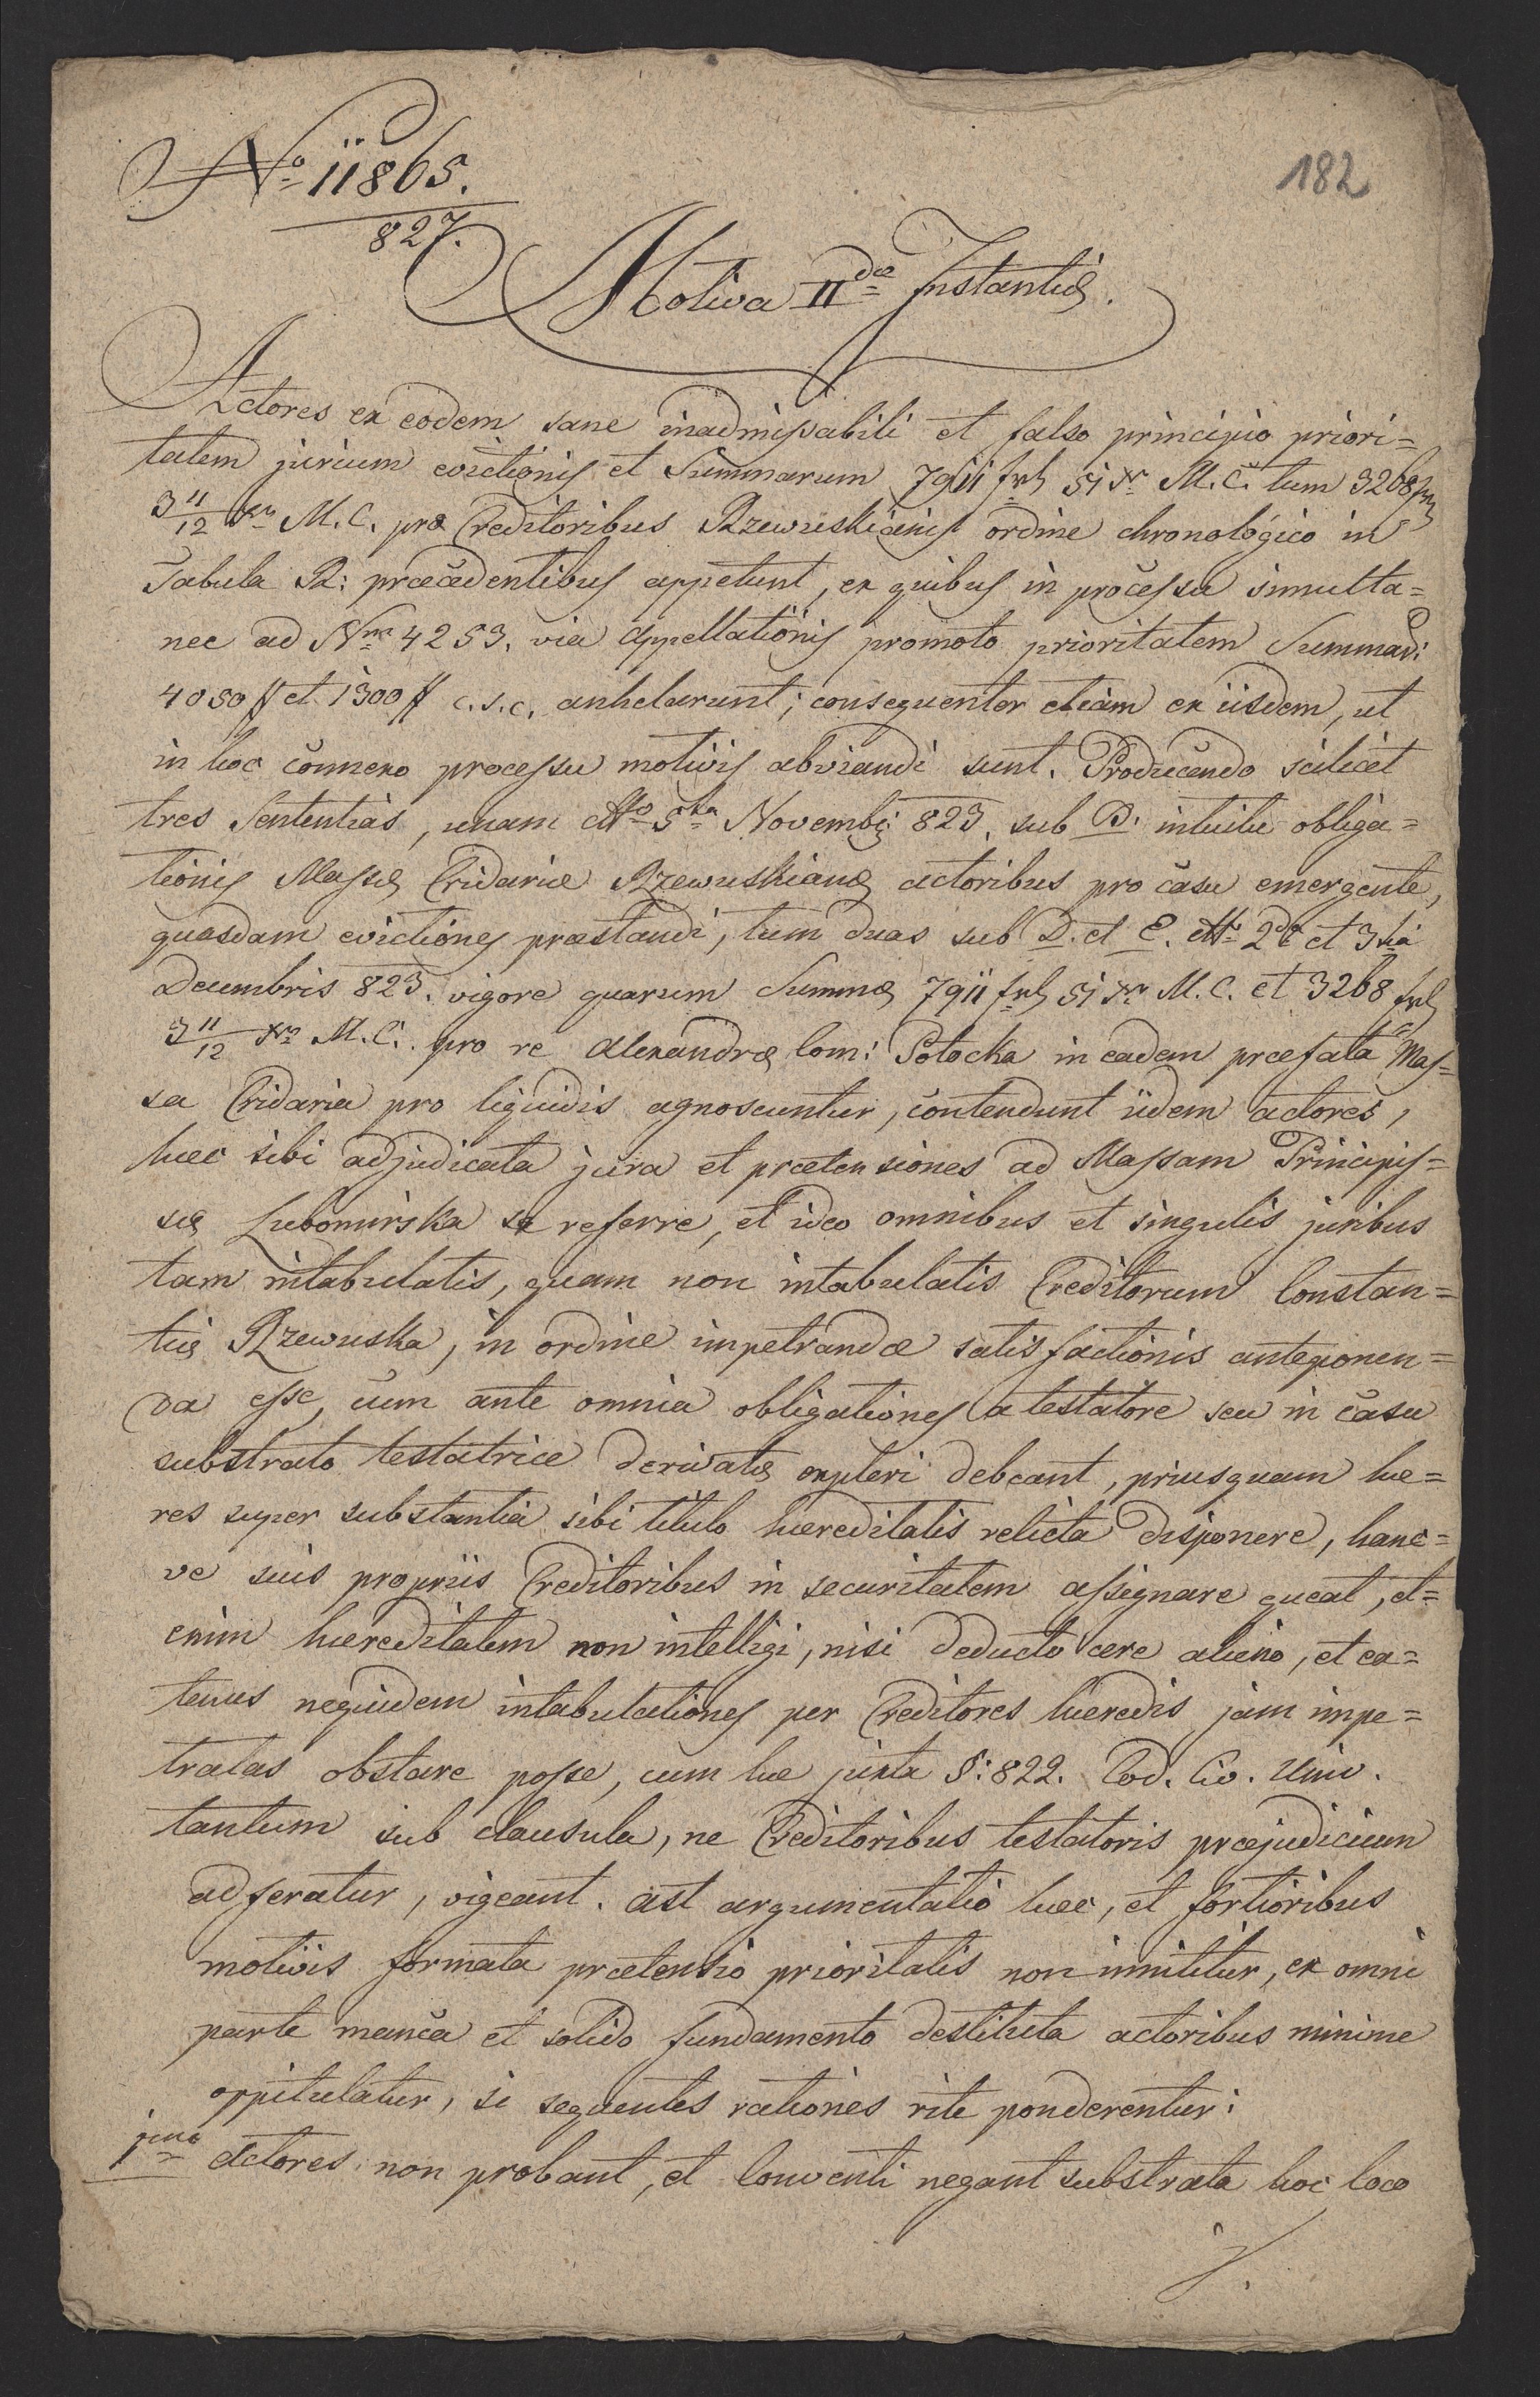 No 11865.
827.
182
Motiva IIdæ Instantiæ.
Actores ex eodem sane inadmissabili et falso principio priori=
tatem jurium evictionis et Summarum 7911 frh 51 xr M.C. tum 3268 frh
3 11/12 xr M.C. præ Creditoribus Rzewuskianis ordine chronologico in
Tabula R: præcedentibus appetunt, ex quibus in processu simulta=
nee ad Nrm 4253. via Appellationis promoto prioritatem Summar:
4050 ff et 1300 ff c.s.c. anhelarunt; consequenter etiam ex iisdem, ut
in hoc connexo processu motivis abviandi sunt. Producendo scilicet
tres Sententias, unam ddto 5ta Novembr: 823. sub B. intuitu obliga=
tionis Massæ Cridariæ Rzewuskianæ actoribus pro casu emergente,
quasdam evictiones præstandi, tum duas sub D. et E. ddto 2da et 3tia
Decembris 823. vigore quarum Summæ 7911 frh 51 xr M.C. et 3268 frh
3 11/12 xr M.C. pro re Alexandræ Com: Potocka in eadem præfata Mas=
sa Cridaria pro liquidis agnoscuntur, contendunt iidem actores,
hæc sibi adjudicata jura et prætensiones ad Massam Principis=
sæ Lubomirska se referre, et ideo omnibus et singulis juribus
tam intabulatis, quam non intabulatis Creditorum Constan=
tiæ Rzewuska, in ordine impetrandæ satisfactionis anteponen=
da esse, cum ante omnia obligationes a testatore seu in casu
substrato testatrice derivatæ expleri debeant, priusquam hæ=
res super substantia sibi titulo hæreditatis relicta disponere, hanc=
ve suis propriis Creditoribus in securitatem assignare queat, et=
enim hæreditatem non intelligi, nisi deducto ære alieno, et ea=
tenus nequidem intabulationes per Creditores hæredis jam impe=
tratas obstare posse, cum hæ juxta §: 822. Cod. Civ. Univ.
tantum sub clausula, ne Creditoribus testatoris præjudicium
adferatur, vigeant. Ast argumentatio hæc, et fortioribus
motivis formata prætensio prioritatis non innititur, ex omni
parte manca et solido fundamento destituta actoribus minime
oppitulatur, si sequentes rationes rite ponderentur:
1mo Actores non probant, et Conventi negant substrata hoc loco